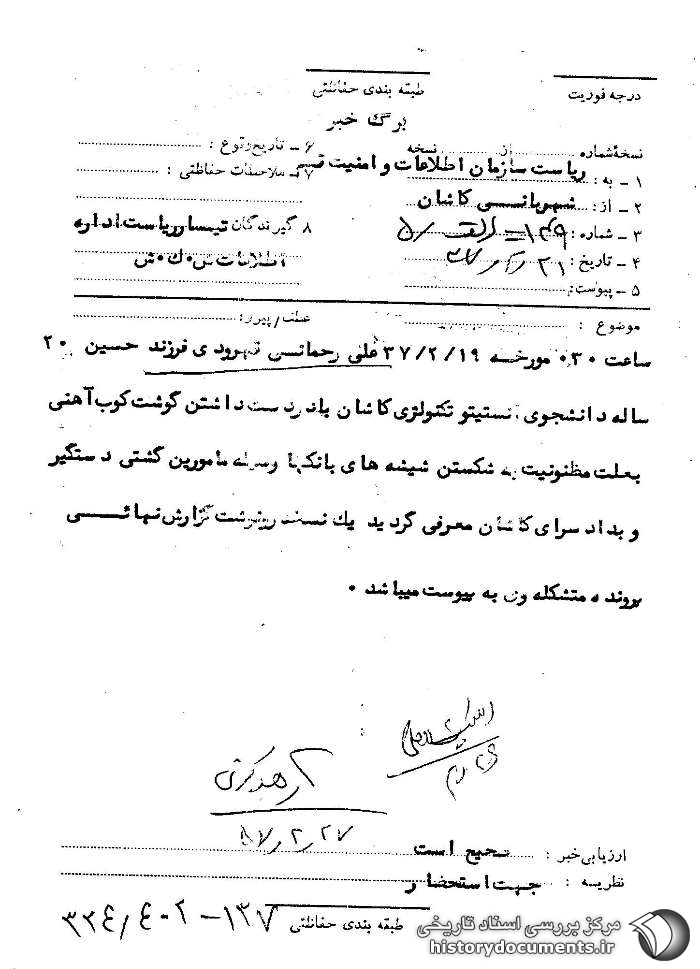 درجه فوریت
طبقه بندی حفاظتی
برگ خبر
نسخهٔ شماره از نسخه
۱ – به : ریاست سازمان اطلاعات و امنیت
۲ – از : شهربانی کاشان
۳ – شماره :
۴ – تاریخ :
۵ – پیوست :
۶ – تاریخ وقوع :
۷ – ملاحظات حفاظتی :
۸ گیرندگان تیمسار ریاست اداره
اطلاعات ش۰ک۰ش
موضوع :
عطف/پیرو :
ساعت ۰۳۰ مورخه ۳۷/۲/۱۹ علی رحمانی قهرودی فرزند حسین ۲۰
ساله دانشجوی انستیتو تکنولژی کاشان بادردست داشتن گوشت کوب آهنی
بعلت مظنونیت به شکستن شیشه های بانکها وسیله مامورین گشتی دستگیر
و بدادسرای کاشان معرفی گردید یک نسخه رونوشت گزارش نهائی
پرونده متشکله وی به پیوست میباشد ۰
۵۷٫۲٫۲۷
ارزیابی خبر : صحیح است
نظریه : جهت استحضار
طبقه بندی حفاظتی
۳۳۴٫۴۰۲–۱۳۷
مرکز بررسی اسناد تاریخی
historydocuments.ir